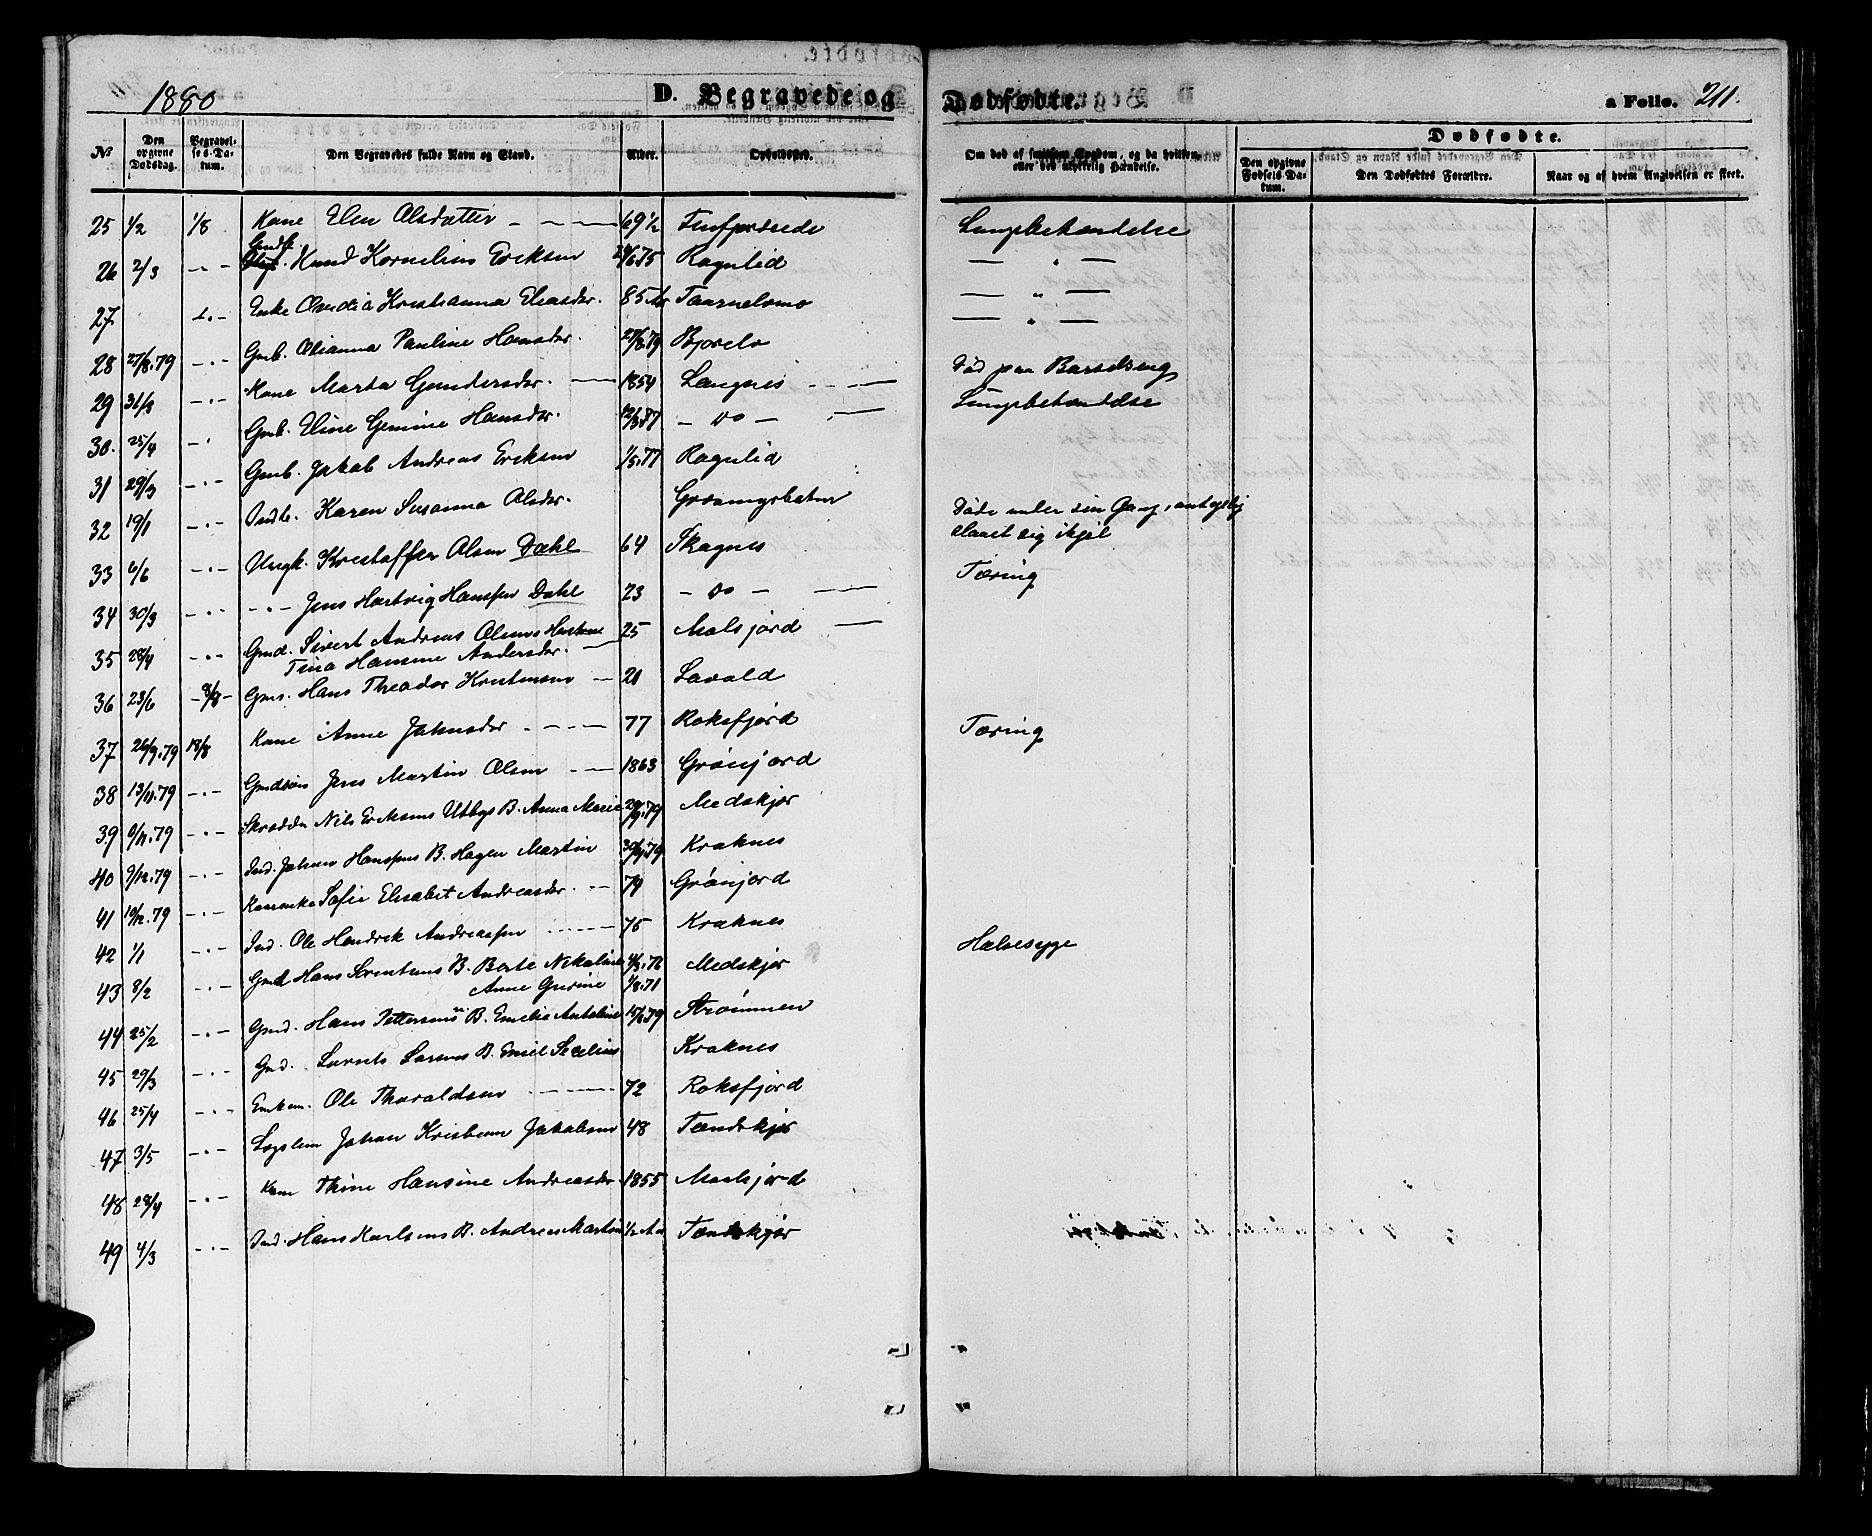 1880 D. Begravede og Dødfødte. a Folio. 211.
No Den opgivne Dødsdag. Begravelses-Datum. Den Begravedes fulde Navn og Stand. Alder. Opholdssted. Om død af smitsom Sygdom, og da hvilken, eller ved ulykkelig Hændelse. Dødfødte.
Den opgivne Fødsels-Datum. Den Dødfødtes Forældre. Naar og af hvem Angivelsen er skeet.
25 1/2 1/8 Kone Elen Olsdatter - - - 69 1/2 Lungebetændelse
26 2/3 - " - Knud Kornelius Eriksen Ragnlid — " —
27 - " - Enke Ovedia Kristianna Eliasdr. 85 Taarnelvmo — " —
28 27/8.79 - " - Gmb. Olianna Pauline Hansdr. Bjorelv — " —
29 31/3 - " - Kone Marta Gundersdr. — 1854 Langnes - - — Død paa Barselseng
30. 25/4 - " Gmb. Eline Gemine Hansdr. - do - — Lungebetændelse
31 29/3 - " - Gmb. Jakob Andreas Eriksen 1/5.77 Ragnlid
32 19/1 - " - Indb. Karen Susanna Olsdr. Døde under sin Gang, antagelig
slaaet sig ihjel
33 6/6 - " - Ungk. Kristoffer Olsen Dahl 64 Skagnes
34 30/3 - " - - " - Jens Hartvig Hanssen Dahl 23 - do - — Tæring
35 28/4 - " - Gmd. Sivert Andreas Olsens Hustru 25 Malsjord —
Tina Hansine Andersdr. —
36 23/6 - 8/8 - Gms. Hans Theodor Kristensen — 21 Lavold
37 26/9.79 18/8 Kone Anne Johnsdr - - - 77 Roksfjord Tæring
38 13/11.79 - " - Gmdsøn Jens Martin Olsen - — 1863 Grønjord
39 6/11.79 - " - Skrædder Nils Eriksens Utbys B. Anna Marie 29/9.79 Medskjer
40 9/12.79 - " - Ind. Johan Hanssens B. Hagen Martin Kraknes
41 19/12.79 - " - Sofie Elisabet Andreasdr. - — 79 Grønjord
42 1/1 - " - Ind. Ole Hendrik Andreassen - - - 75 Kraknes
43 8/2 - " - Gmd Hans Sørentsens B. Berte Nikoline 4/3.76 Medskjer Halsesyge
Anne Gurine 1/8.71
44 25/2 - " - Gmd. Hans Pettersens B. Emelie Antoline Strømmen
45 29/3 - " - Gmd. Larsens B. Emil Kraknes
46 25/4 - " - Enkem. Ole Thoraldsen - - - 72 Roksfjord
47 3/5 - " - Lægslem Johan Kristian Jakobsen 48 Tændskjer
48 28/4 - " - Kone Thine Hansine Andreasdr. 1855 Malsjord
49 4/3 - " - Ind. Hans Karlsens B. Andreas Martin 1/2 Aar Tændskjær